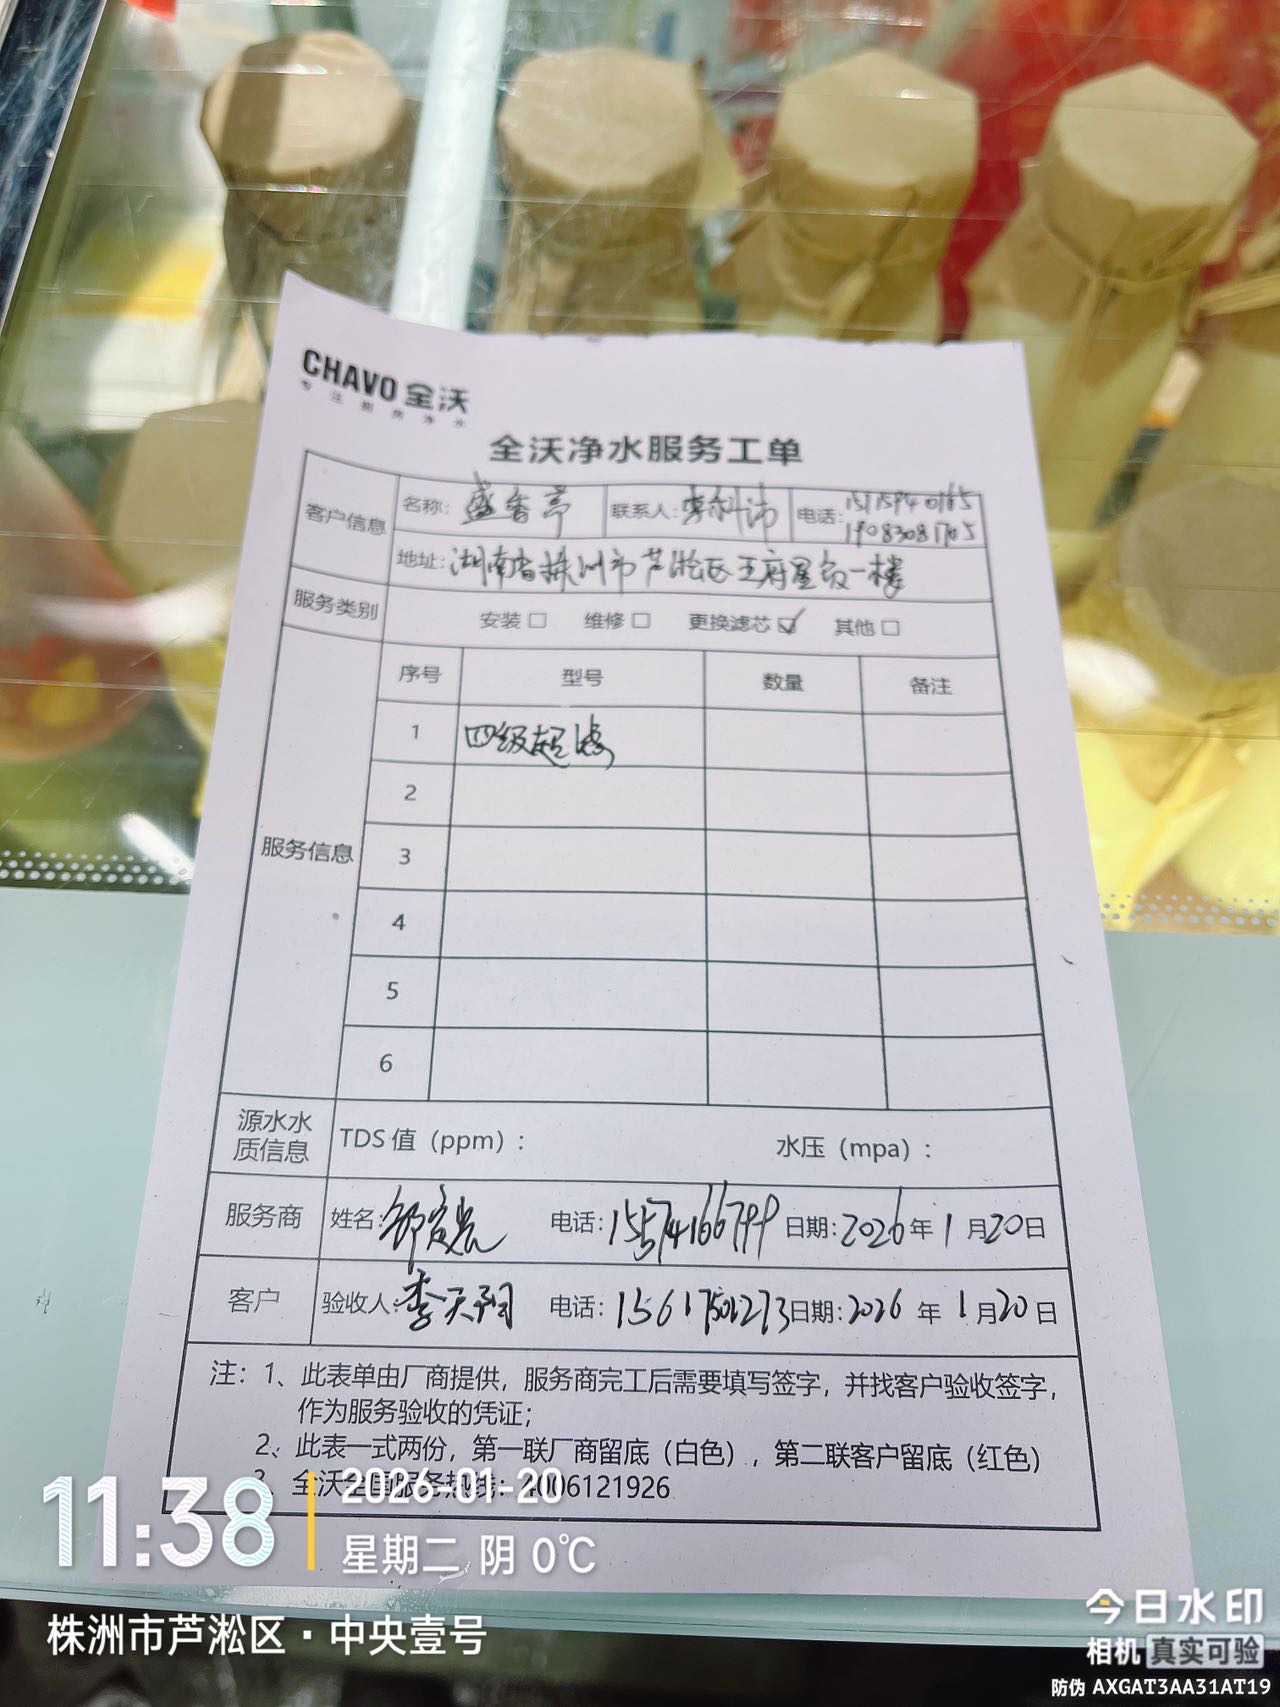 CHAVO 全沃
专注厨房净水
全沃净水服务工单
客户信息 名称: 盛香亭 联系人: 电话: 15115940165
19083081705
地址: 湖南省株洲市芦淞区王府星级一楼
服务类别 安装□ 维修□ 更换滤芯☑ 其他□
服务信息 序号 型号 数量 备注
1 四级超滤
2
3
4
5
6
源水水质信息 TDS 值（ppm）: 水压（mpa）:
服务商 姓名: 电话: 15574166799 日期: 2026年 1月20日
客户 验收人: 季天翔 电话: 15617501273 日期: 2026年 1月20日
注: 1、此表单由厂商提供，服务商完工后需要填写签字，并找客户验收签字，
作为服务验收的凭证；
2、此表一式两份，第一联厂商留底（白色），第二联客户留底（红色）
3、全沃全国服务热线: 4006121926
11:38
2026-01-20
星期二 阴 0℃
株洲市芦淞区·中央壹号
今日水印
相机 真实可验
防伪 AXGAT3AA31AT19